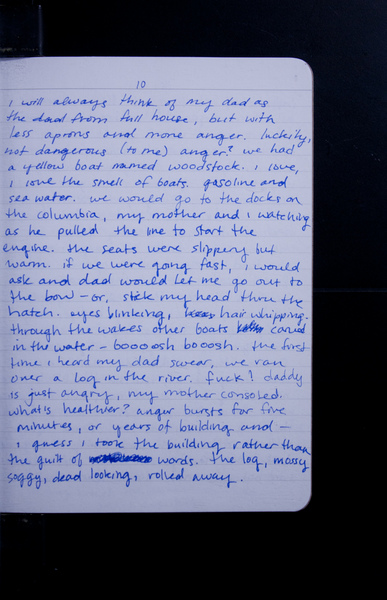 10
i will always think of my dad as
the dad from full house, but with
less aprons and more anger. luckily,
not dangerous (to me) anger? we had
a yellow boat named woodstock. i love,
i love the smell of boats. gasoline and
sea water. we would go to the docks on
the columbia, my mother and i watching
as he pulled the line to start the
engine. the seats were slippery but
warm. if we were going fast, i would
ask and dad would let me go out to
the bow – or, stick my head thru the
hatch. eyes blinking, hair whipping.
through the wakes other boats carved
in the water – boooosh booosh. the first
time i heard my dad swear, we ran
over a log in the river. fuck! daddy
is just angry, my mother consoled.
what's healthier? anger bursts for five
minutes, or years of building and –
i guess i took the building rather than
the guilt of words. the log, mossy
soggy, dead looking, rolled away.